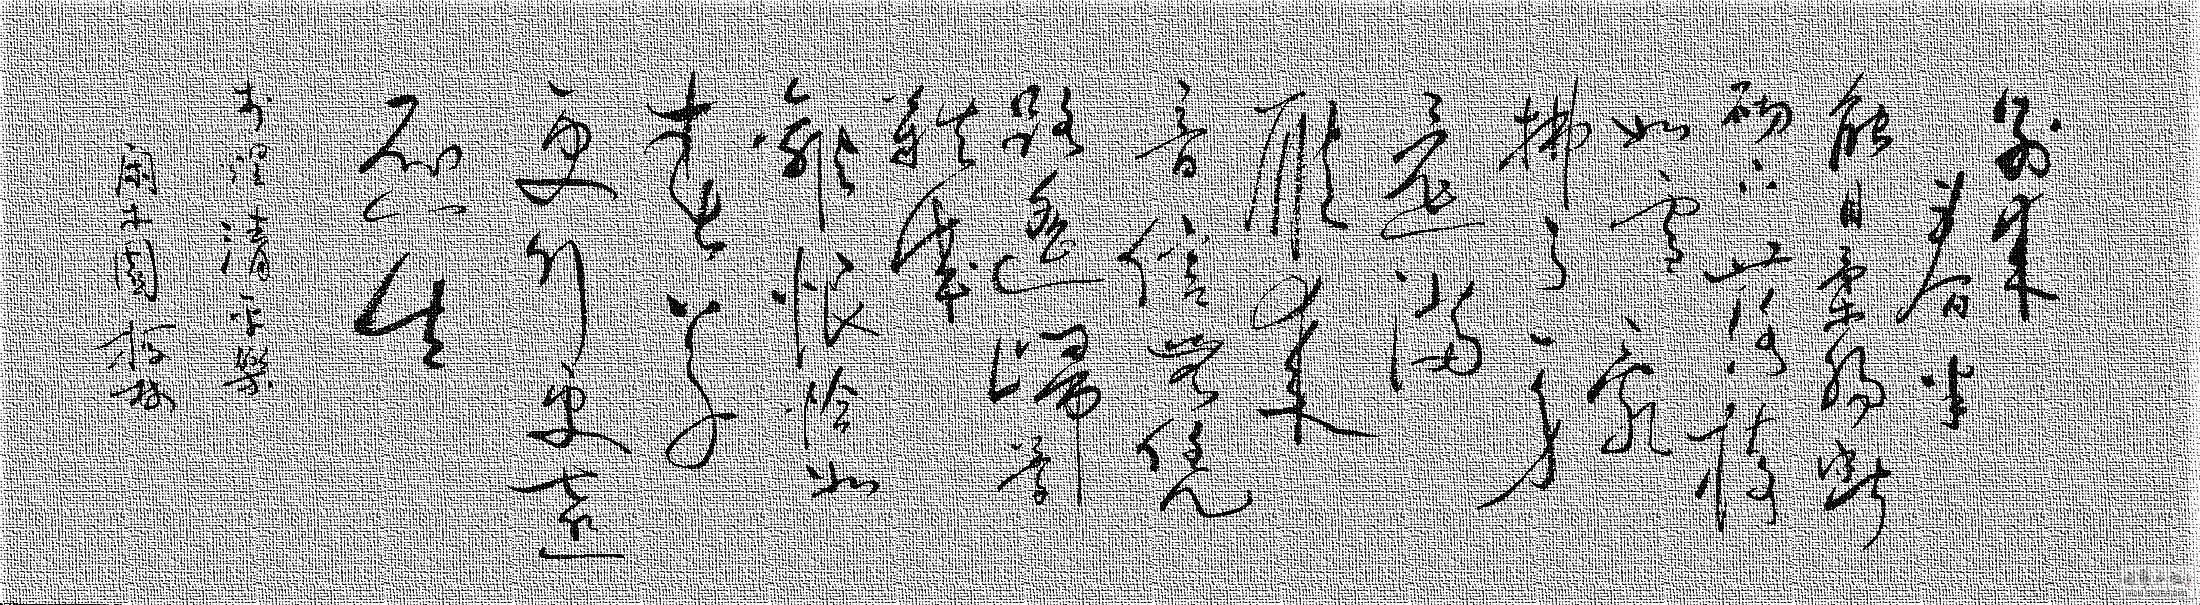 别来
春半
触目柔肠断
砌下落梅
如雪乱
拂了一身
还满
雁来
音信无凭
路遥归梦
难成
离恨恰如
春草
更行更远
还生
李煜清平乐